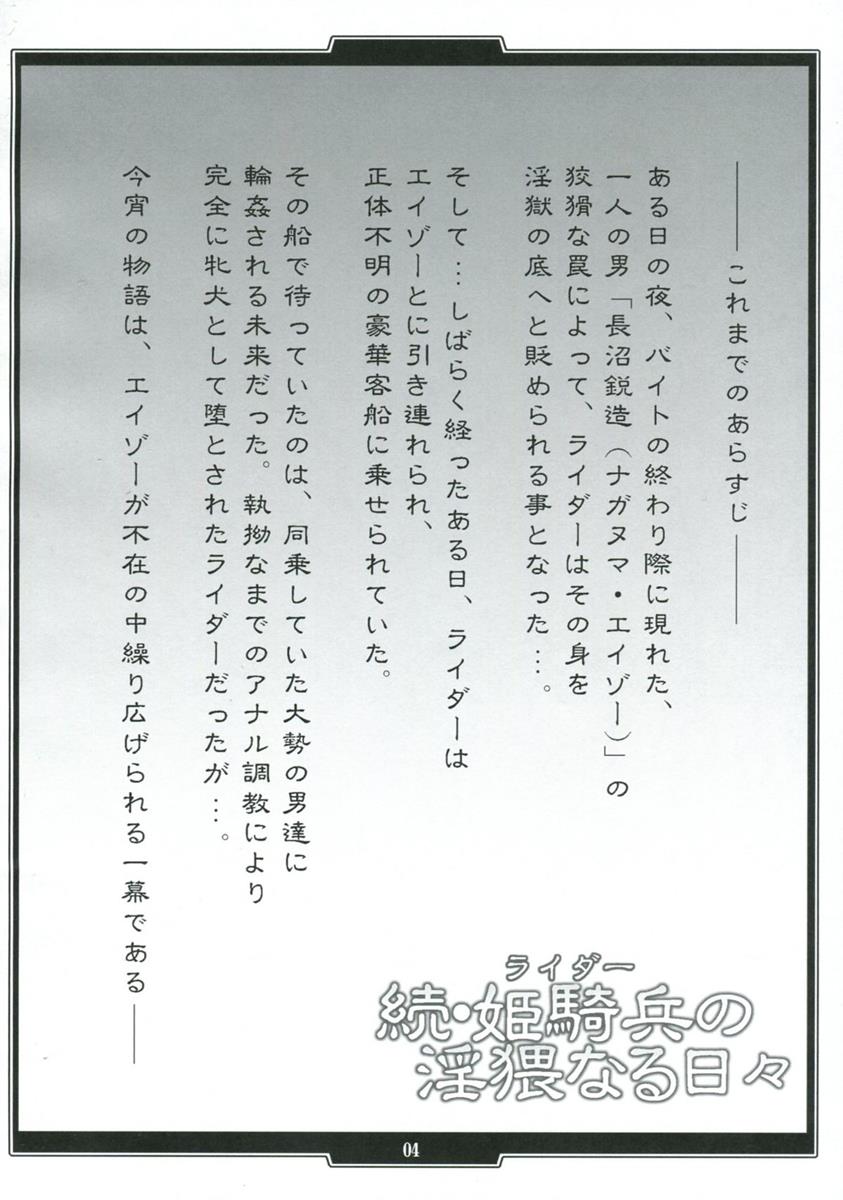 ――これまでのあらすじ――
ある日の夜、バイトの終わり際に現れた、
一人の男「長沼鋭造（ナガヌマ・エイゾー）」の
狡猾な罠によって、ライダーはその身を
淫獄の底へと貶められる事となった…。
そして…しばらく経ったある日、ライダーは
エイゾーとに引き連れられ、
正体不明の豪華客船に乗せられていた。
その船で待っていたのは、同乗していた大勢の男達に
輪姦される未来だった。執拗なまでのアナル調教により
完全に牝犬として堕とされたライダーだったが…。
今宵の物語は、エイゾーが不在の中繰り広げられる一幕である――
ライダー
続・姫騎兵の
淫猥なる日々
04